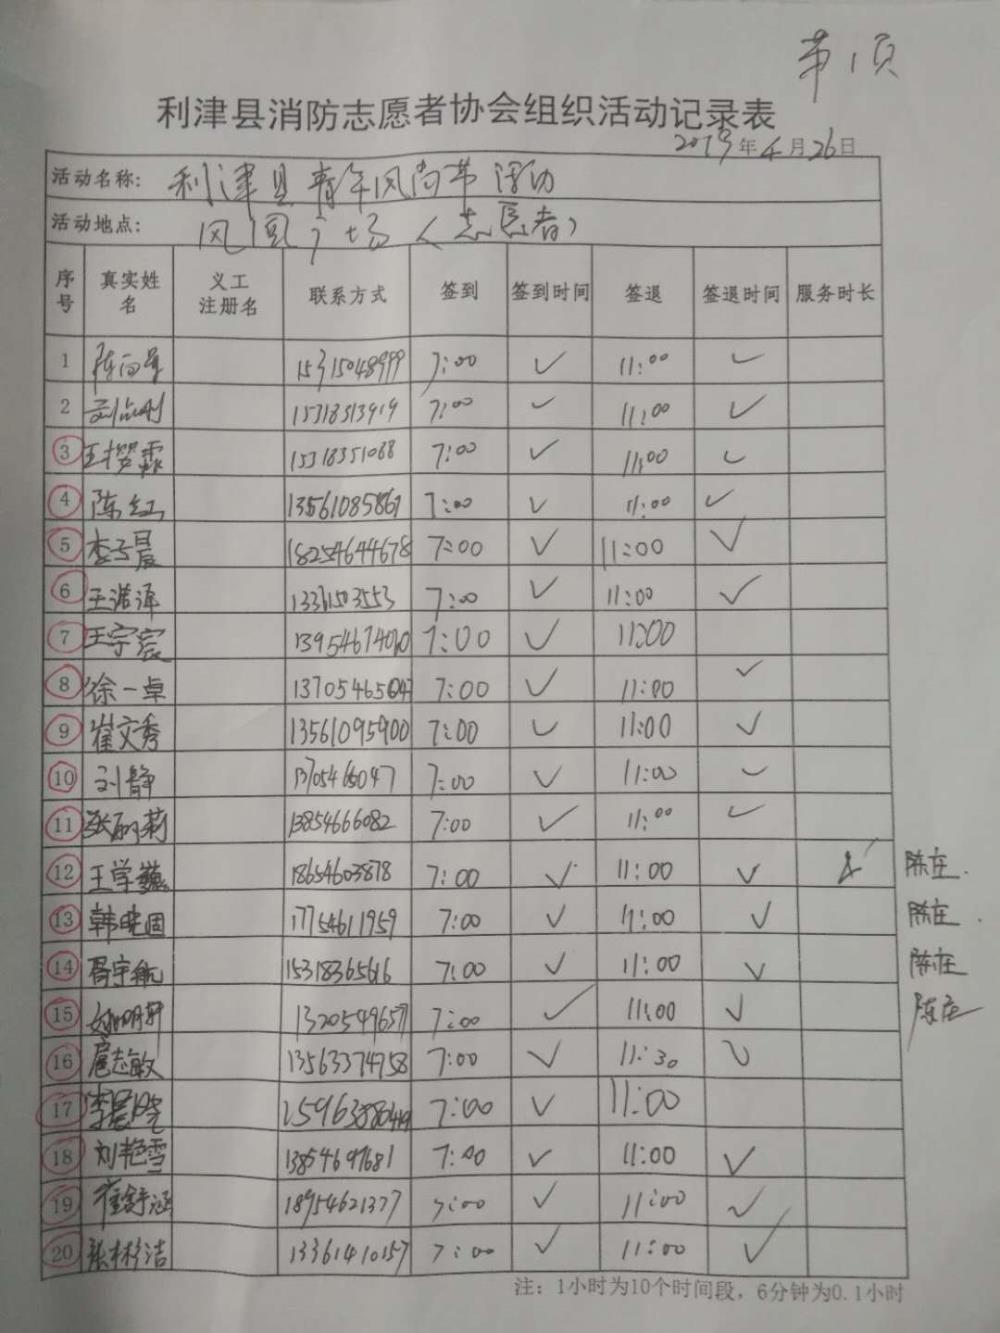 第1页
利津县消防志愿者协会组织活动记录表
2019年4月26日
活动名称: 利津县青年风尚节活动
活动地点: 凤凰广场(志愿者)
序号 真实姓名 义工注册名 联系方式 签到 签到时间 签退 签退时间 服务时长
1 15315048999 7:00 ✓ 11:00 ✓
2 15318313919 7:00 ✓ 11:00 ✓
3 王梓霖 15318351088 7:00 ✓ 11:00 ✓
4 陈红 13561085867 7:00 ✓ 11:00 ✓
5 李子晨 18254644678 7:00 ✓ 11:00 ✓
6 王浩泽 13361503553 7:00 ✓ 11:00 ✓
7 王宇宸 7:00 ✓ 11:00
8 徐一卓 7:00 ✓ 11:00 ✓
9 崔文秀 13561095900 7:00 ✓ 11:00 ✓
10 刘静 13705465047 7:00 ✓ 11:00 ✓
11 张丽莉 13854666082 7:00 ✓ 11:00 ✓
12 王学 18654603878 7:00 ✓ 11:00 ✓ 陈庄.
13 韩晓 17754611959 7:00 ✓ 11:00 ✓ 陈庄.
14 宇航 15318365616 7:00 ✓ 11:00 ✓ 陈庄
15 明轩 1320549657 7:00 ✓ 11:00 ✓ 陈庄
16 扈志敏 13563374758 7:00 ✓ 11:30 ✓
17 7:00 ✓ 11:00
18 刘艳雪 13854697681 7:00 ✓ 11:00 ✓
19 崔舒涵 18954621377 7:00 ✓ 11:00 ✓
20 张彬洁 13361410157 7:00 ✓ 11:00 ✓
注: 1小时为10个时间段, 6分钟为0.1小时